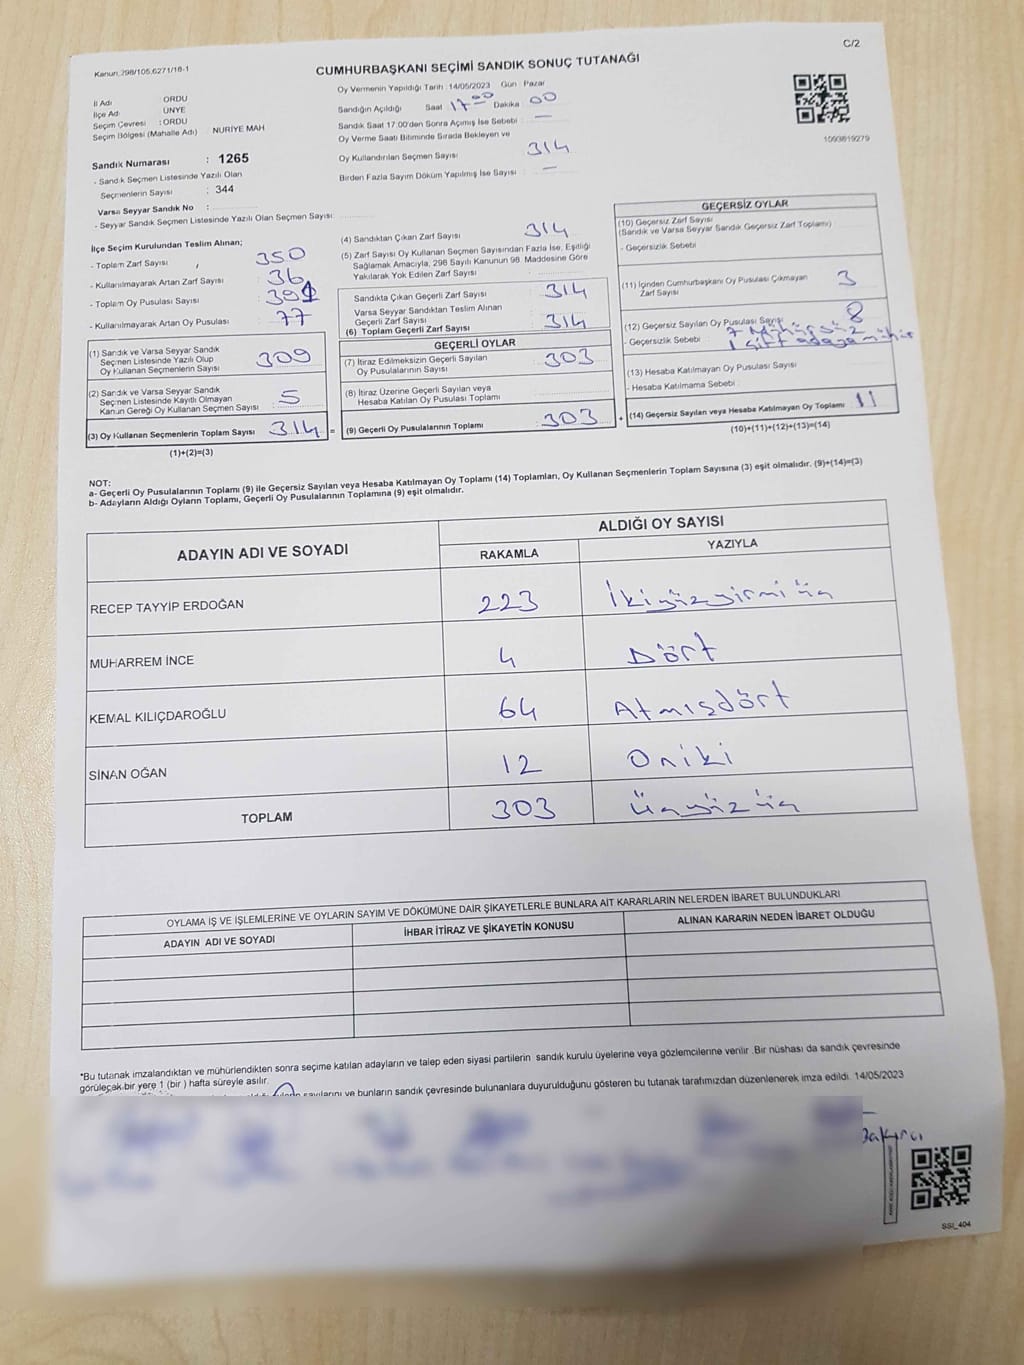 C/2
Kanun:298/105,6271/18-1
CUMHURBAŞKANI SEÇİMİ SANDIK SONUÇ TUTANAĞI
İl Adı : ORDU
İlçe Adı : ÜNYE
Seçim Çevresi : ORDU
Seçim Bölgesi (Mahalle Adı) NURİYE MAH
Sandık Numarası : 1265
- Sandık Seçmen Listesinde Yazılı Olan
Seçmenlerin Sayısı : 344
Varsa Seyyar Sandık No :
- Seyyar Sandık Seçmen Listesinde Yazılı Olan Seçmen Sayısı:
Oy Vermenin Yapıldığı Tarih :14/05/2023 Gün : Pazar
Sandığın Açıldığı Saat 17:00 Dakika 00
Sandık Saat 17:00'den Sonra Açımış İse Sebebi : —
Oy Verme Saati Bitiminde Sırada Bekleyen ve
Oy Kullandırılan Seçmen Sayısı 314
Birden Fazla Sayım Döküm Yapılmış İse Sayısı : —
1093819279
İlçe Seçim Kurulundan Teslim Alınan;
- Toplam Zarf Sayısı : 350
- Kullanılmayarak Artan Zarf Sayısı : 36
- Toplam Oy Pusulası Sayısı : 391
- Kullanılmayarak Artan Oy Pusulası : 77
(1) Sandık ve Varsa Seyyar Sandık
Seçmen Listesinde Yazılı Olup
Oy Kullanan Seçmenlerin Sayısı : 309
(2) Sandık ve Varsa Seyyar Sandık
Seçmen Listesinde Kayıtlı Olmayan
Kanun Gereği Oy Kullanan Seçmen Sayısı : 5
(3) Oy Kullanan Seçmenlerin Toplam Sayısı : 314 =
(1)+(2)=(3)
(4) Sandıktan Çıkan Zarf Sayısı : 314
(5) Zarf Sayısı Oy Kullanan Seçmen Sayısından Fazla İse, Eşitliği
Sağlamak Amacıyla, 298 Sayılı Kanunun 98. Maddesine Göre
Yakılarak Yok Edilen Zarf Sayısı :
Sandıkta Çıkan Geçerli Zarf Sayısı : 314
Varsa Seyyar Sandıktan Teslim Alınan
Geçerli Zarf Sayısı
(6) Toplam Geçerli Zarf Sayısı : 314
GEÇERLİ OYLAR
(7) İtiraz Edilmeksizin Geçerli Sayılan
Oy Pusulalarının Sayısı : 303
(8) İtiraz Üzerine Geçerli Sayılan veya
Hesaba Katılan Oy Pusulası Toplamı :
(9) Geçerli Oy Pusulalarının Toplamı : 303 +
GEÇERSİZ OYLAR
(10) Geçersiz Zarf Sayısı
(Sandık ve Varsa Seyyar Sandık Geçersiz Zarf Toplamı)
- Geçersizlik Sebebi :
(11) İçinden Cumhurbaşkanı Oy Pusulası Çıkmayan
Zarf Sayısı 3
(12) Geçersiz Sayılan Oy Pusulası Sayısı 8
- Geçersizlik Sebebi : 7 Mühürsüz
1 çift adaya mühür
(13) Hesaba Katılmayan Oy Pusulası Sayısı
- Hesaba Katılmama Sebebi :
(14) Geçersiz Sayılan veya Hesaba Katılmayan Oy Toplamı 11
(10)+(11)+(12)+(13)=(14)
NOT:
a- Geçerli Oy Pusulalarının Toplamı (9) ile Geçersiz Sayılan veya Hesaba Katılmayan Oy Toplamı (14) Toplamları, Oy Kullanan Seçmenlerin Toplam Sayısına (3) eşit olmalıdır. (9)+(14)=(3)
b- Adayların Aldığı Oyların Toplamı, Geçerli Oy Pusulalarının Toplamına (9) eşit olmalıdır.
ADAYIN ADI VE SOYADI ALDIĞI OY SAYISI
RAKAMLA YAZIYLA
RECEP TAYYİP ERDOĞAN 223 İkiyüzyirmiüç
MUHARREM İNCE 4 Dört
KEMAL KILIÇDAROĞLU 64 Atmışdört
SİNAN OĞAN 12 Oniki
TOPLAM 303 Üçyüzüç
OYLAMA İŞ VE İŞLEMLERİNE VE OYLARIN SAYIM VE DÖKÜMÜNE DAİR ŞİKAYETLERLE BUNLARA AİT KARARLARIN NELERDEN İBARET BULUNDUKLARI
ADAYIN ADI VE SOYADI İHBAR İTİRAZ VE ŞİKAYETİN KONUSU ALINAN KARARIN NEDEN İBARET OLDUĞU
*Bu tutanak imzalandıktan ve mühürlendikten sonra seçime katılan adayların ve talep eden siyasi partilerin sandık kurulu üyelerine veya gözlemcilerine verilir. Bir nüshası da sandık çevresinde
görülecek bir yere 1 (bir) hafta süreyle asılır.
sayılarını ve bunların sandık çevresinde bulunanlara duyurulduğunu gösteren bu tutanak tarafımızdan düzenlenerek imza edildi. 14/05/2023
SSI_404